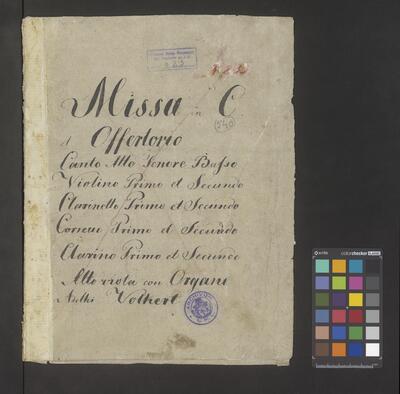 Missa in C
(540)
et Offertorio
Canto Alto Tenore Basso
Violino Primo et Secundo
Clarinetto Primo et Secundo
Cornuo Primo et Secundo
Clarino Primo et Secundo
Alto viola con Organo
Volkert
colorchecker CLASSIC